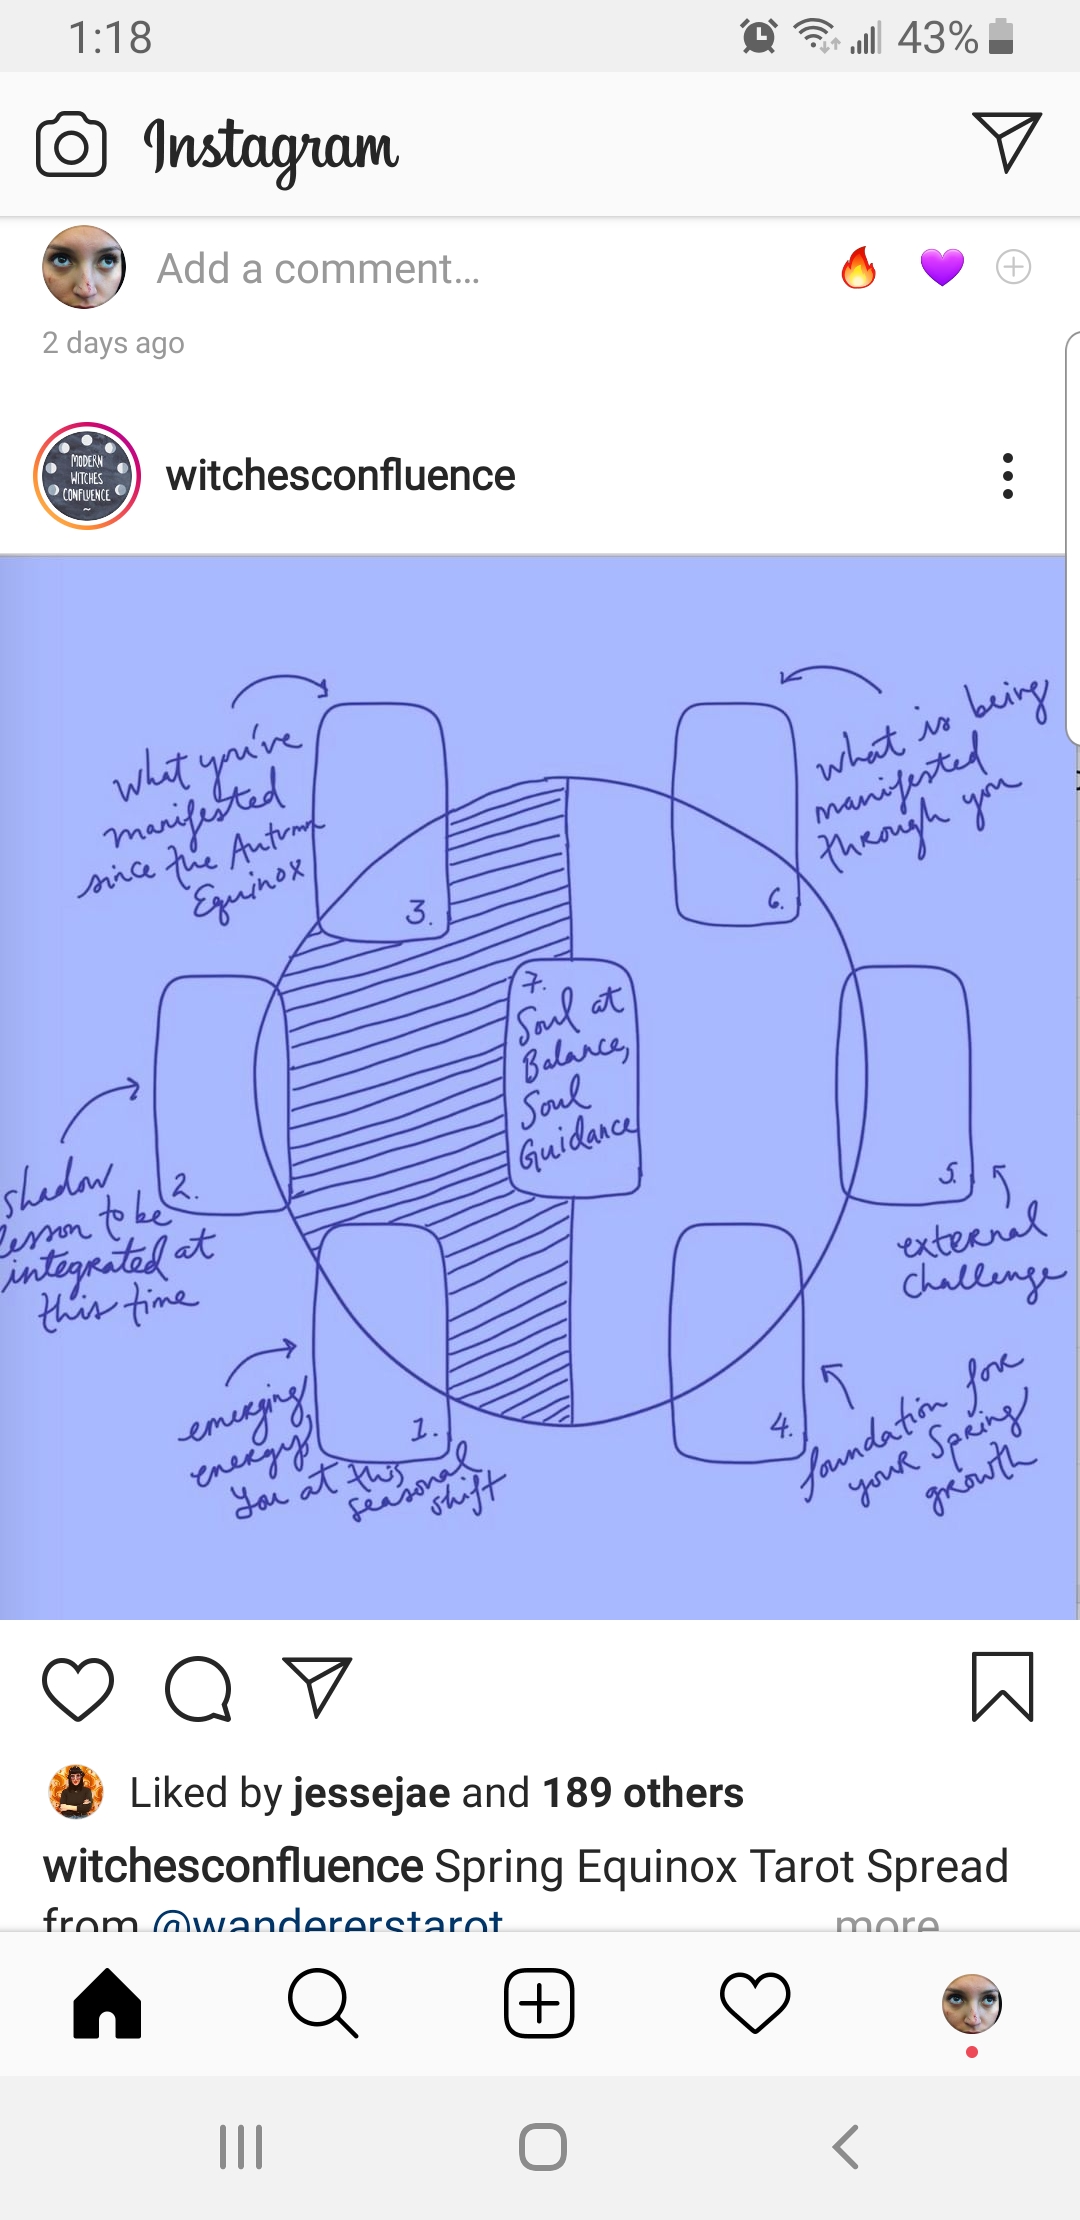 1:18
43%
Instagram
Add a comment...
2 days ago
MODERN
WITCHES
CONFLUENCE
witchesconfluence
What you've
manifested
since the Autumn
Equinox
3.
what is being
manifested
through you
6.
7.
Soul at
Balance,
Soul
Guidance
shadow
lesson to be
integrated at
this time
2.
5.
external
challenge
emerging
energy,
you at this
seasonal
shift
1.
4.
foundation for
your Spring
growth
Liked by jessejae and 189 others
witchesconfluence Spring Equinox Tarot Spread
from @wandererstarot more